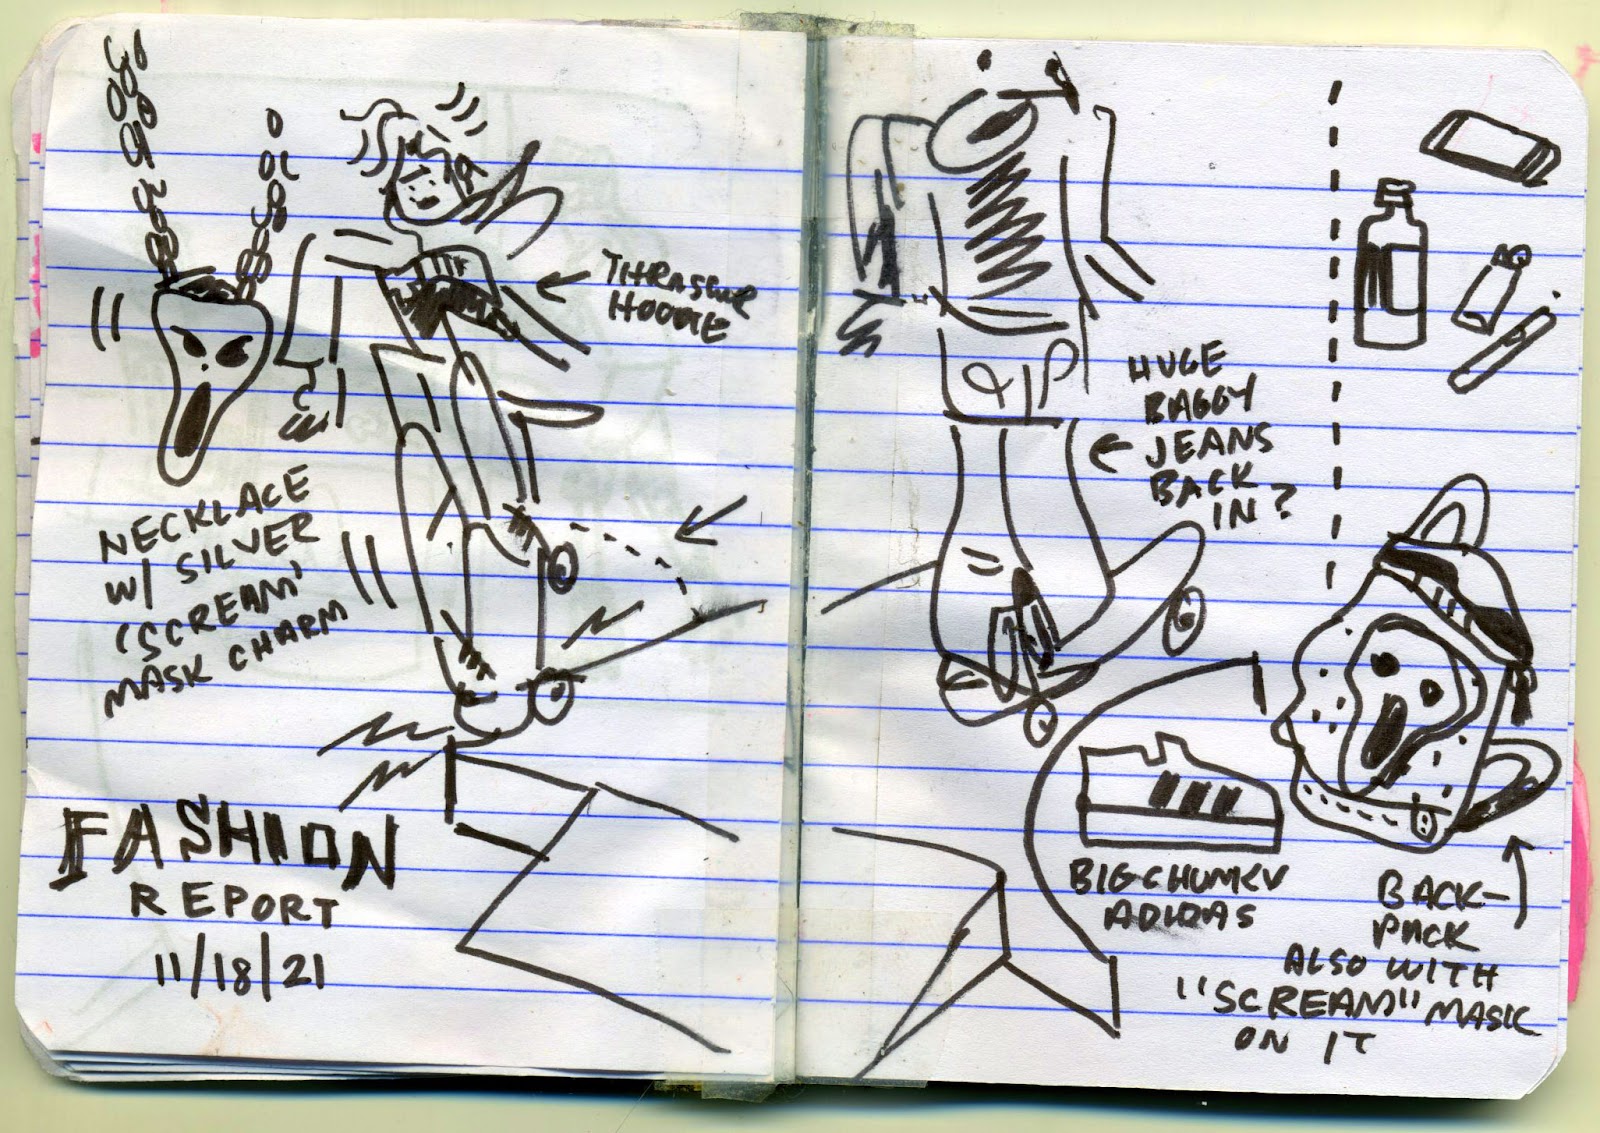 THRASHER
HOODIE
NECKLACE
W/ SILVER
'SCREAM'
MASK CHARM
FASHION
REPORT
11/18/21
HUGE
BAGGY
JEANS
BACK
IN?
BIG CHUNKY
ADIDAS
BACK-
PACK
ALSO WITH
"SCREAM" MASK
ON IT